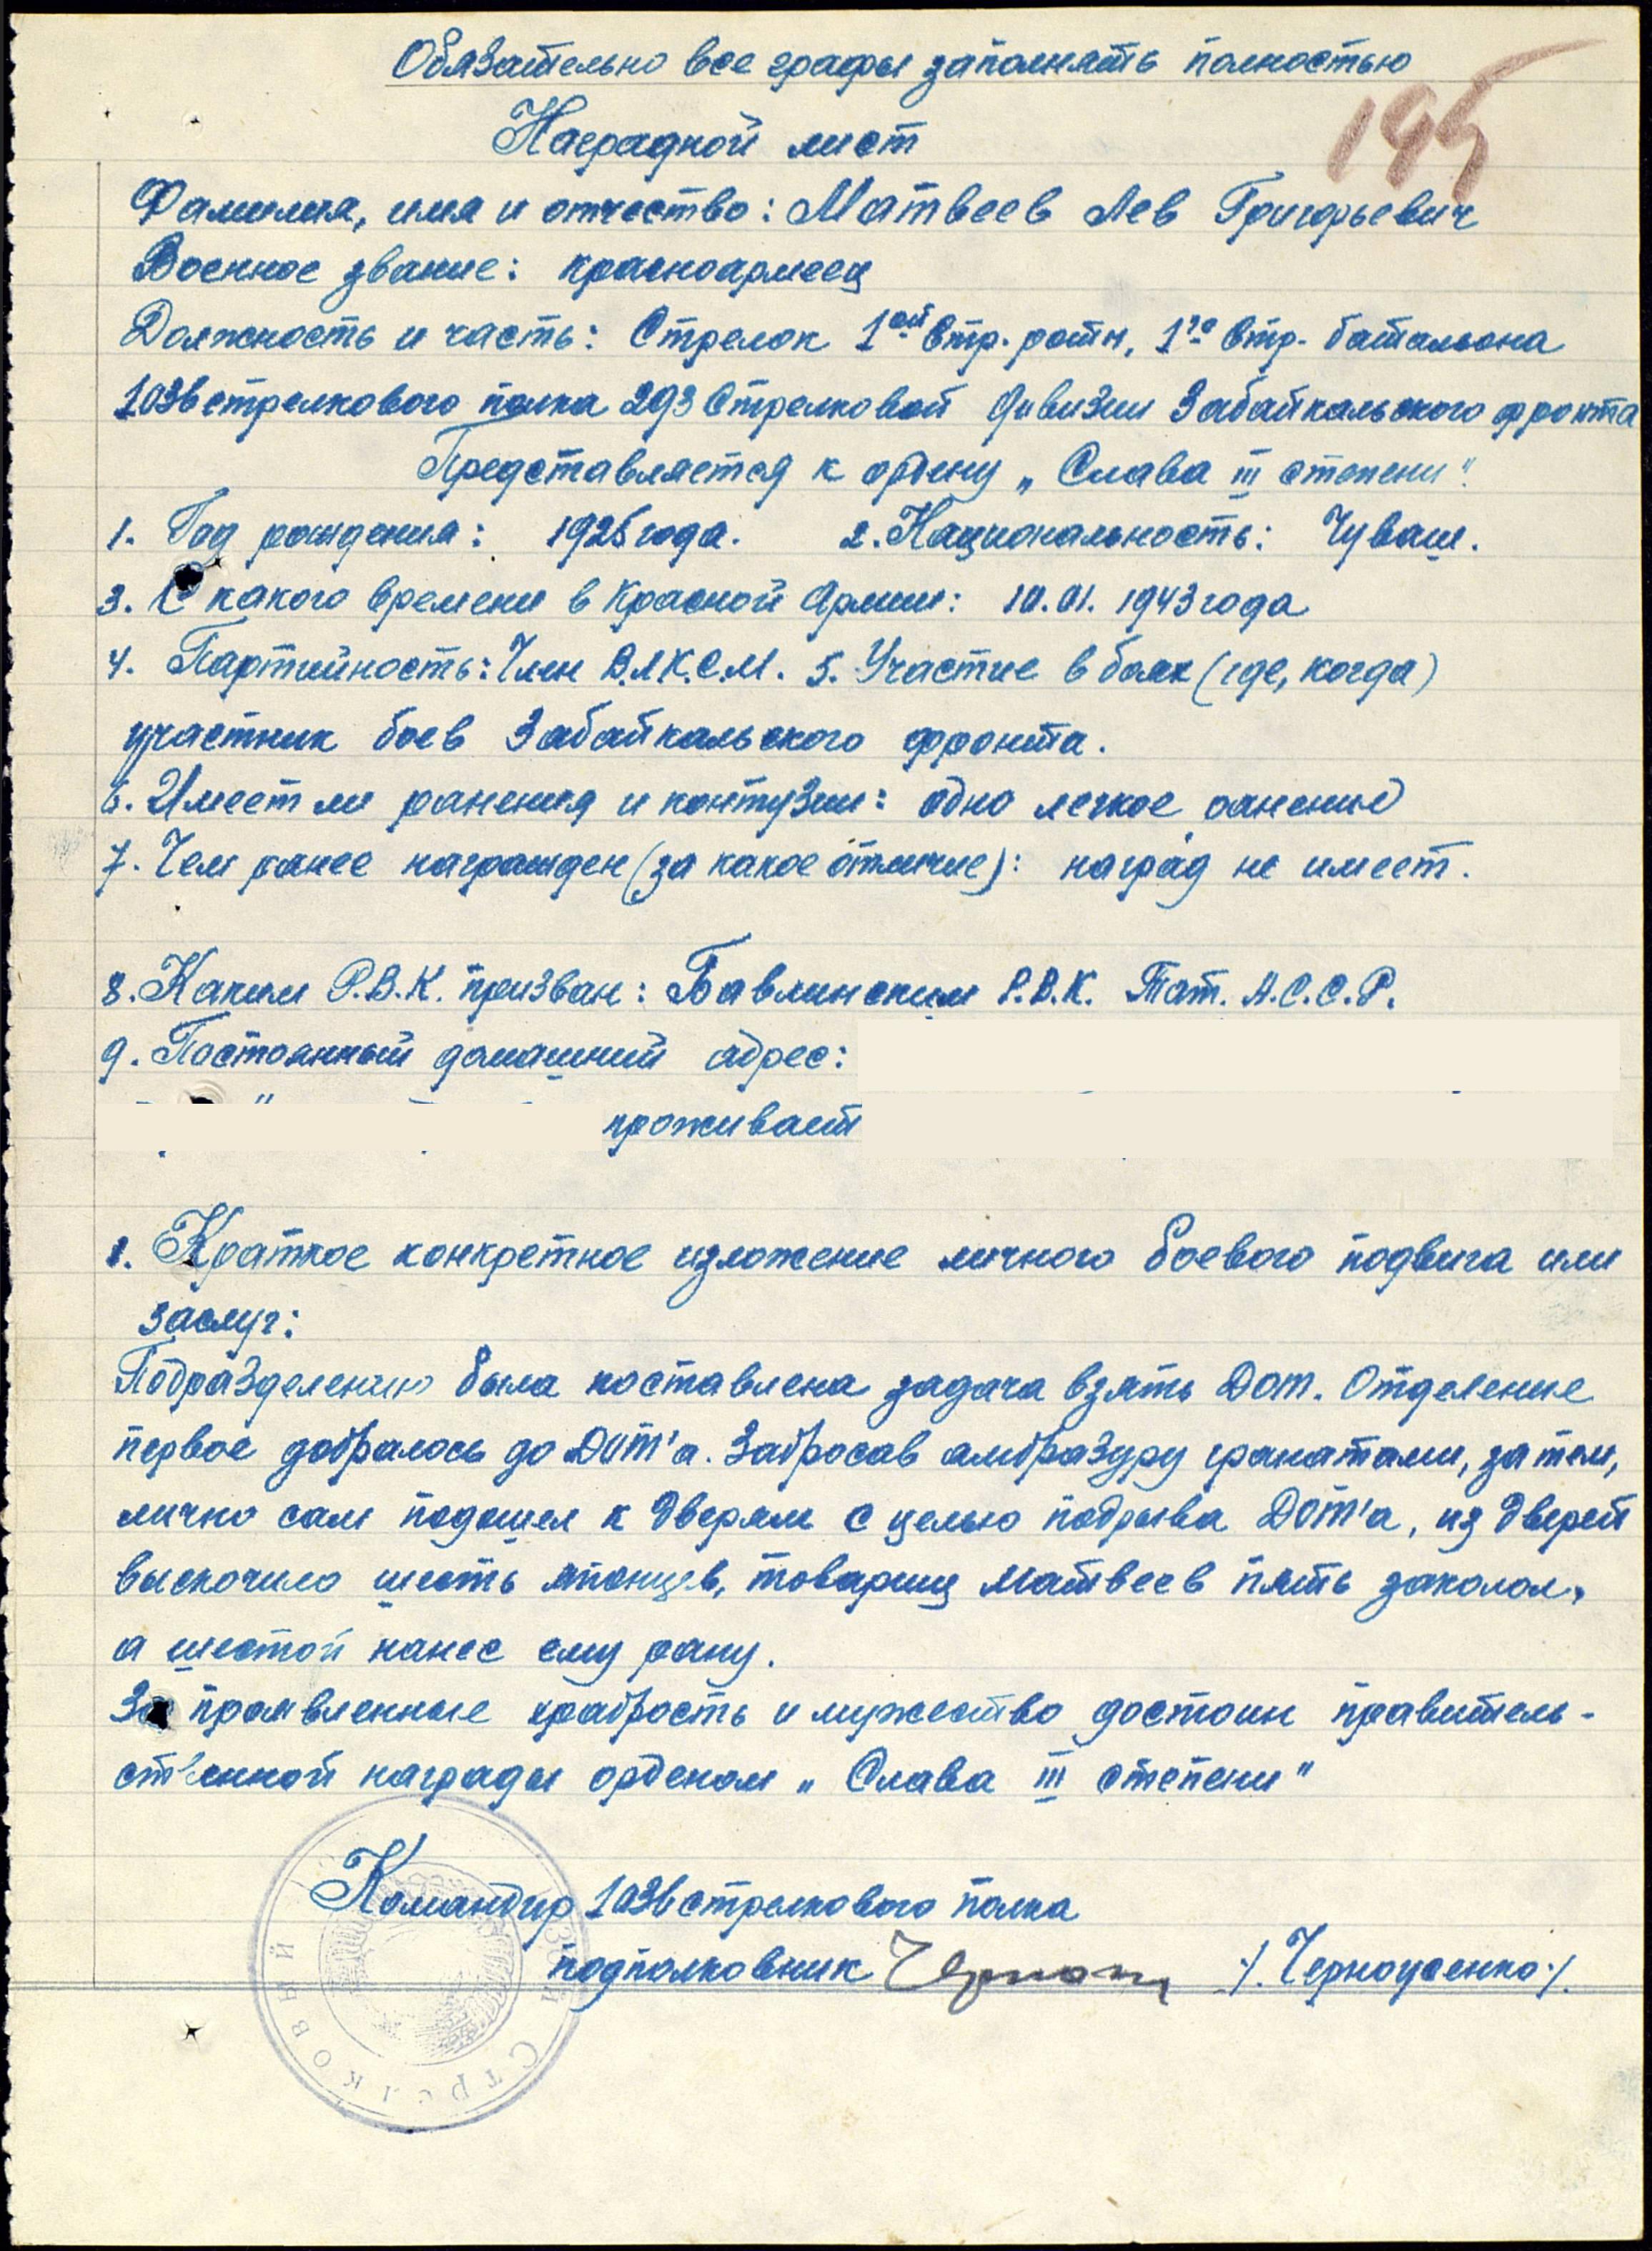 Обязательно все графы заполнять полностью
195
Наградной лист
Фамилия, имя и отчество: Матвеев Лев Григорьевич
Военное звание: красноармеец
Должность и часть: Стрелок 1ой стр. роты, 1го стр. батальона
1036 стрелкового полка 293 Стрелковой дивизии Забайкальского фронта
Представляется к ордену „Слава III степени".
1. Год рождения: 1925 года. 2. Национальность: Чуваш.
3. С какого времени в Красной Армии: 10.01.1943 года
4. Партийность: Член В.Л.К.С.М. 5. Участие в боях (где, когда)
участник боев Забайкальского фронта.
6. Имеет ли ранения и контузии: одно легкое ранение
7. Чем ранее награжден (за какое отличие): наград не имеет.
8. Каким Р.В.К. призван: Бавлинским Р.В.К. Тат. А.С.С.Р.
9. Постоянный домашний адрес:
проживает
1. Краткое конкретное изложение личного боевого подвига или
заслуг:
Подразделению была поставлена задача взять Дот. Отделение
первое добралось до Дот'а. Забросав амбразуру гранатами, затем,
лично сам подошел к дверям с целью подрыва Дот'а, из дверей
выскочило шесть японцев, товарищ Матвеев пять заколол,
а шестой нанес ему рану.
За проявленные храбрость и мужество достоин правитель-
ственной награды орденом „Слава III степени"
Командир 1036 стрелкового полка
подполковник /.Черноусенко./
Стрелковый